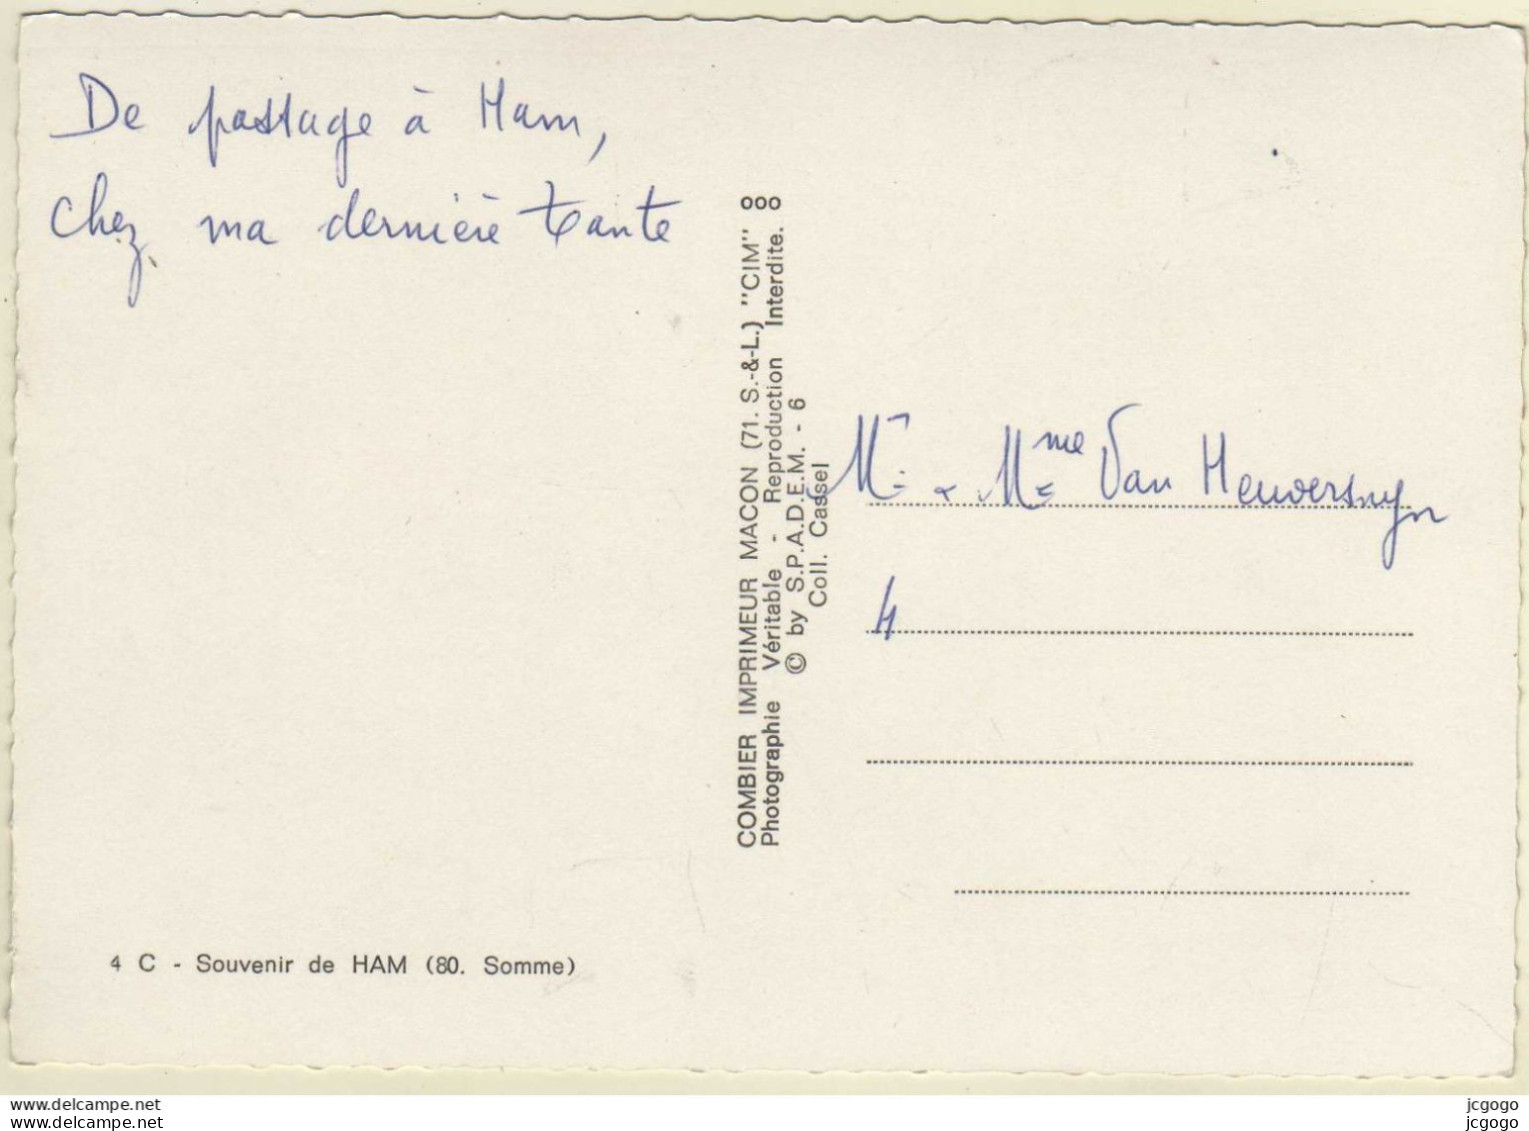 De passage à Ham,
chez ma dernière tante
COMBIER IMPRIMEUR MACON (71. S.-&-L.) "CIM"
Photographie Véritable - Reproduction Interdite.
© by S.P.A.D.E.M. - 6
Coll. Cassel
Mr & Mme Van Heuverswyn
4
4 C - Souvenir de HAM (80. Somme)
delcampe.net jcgogo
delcampe.net jcgogo